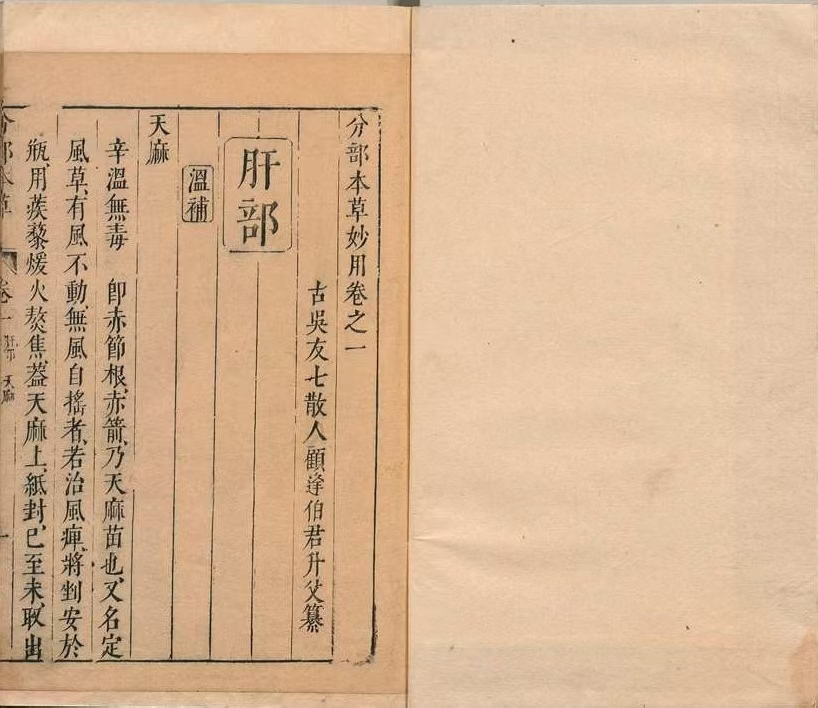 分部本草妙用卷之一
古吳友七散人顧逢伯君升父纂
肝部
溫補
天麻
辛溫無毒 卽赤節根、赤箭、乃天麻苗也、又名定
風草、有風不動、無風自搖者、若治風痺、將剉安於
瓶、用蒺藜煖火熬焦、蓋天麻上、紙封、巳至未、取出
分部本草 卷一 肝部 天麻 一